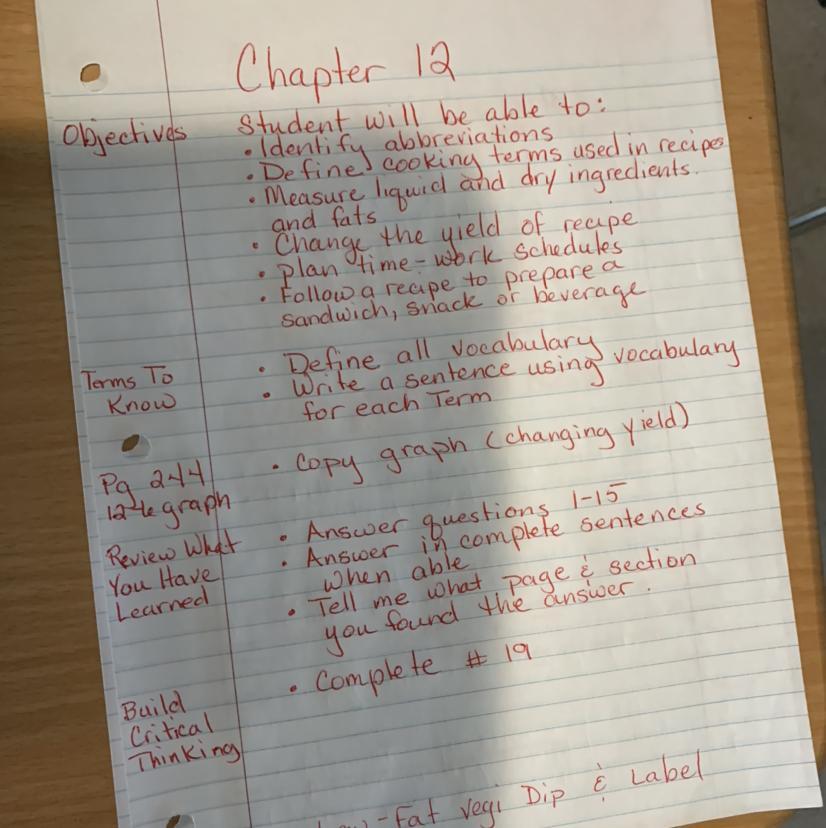 Chapter 12
Objectives Student will be able to:
• Identify abbreviations
• Define cooking terms used in recipes
• Measure liquid and dry ingredients.
and fats
• Change the yield of recipe
• Plan time-work schedules
• Follow a recipe to prepare a
sandwich, snack or beverage
Terms To
Know
• Define all vocabulary
• Write a sentence using vocabulary
for each Term
Pg 244
12-6 graph
• Copy graph (changing yield)
Review What
You Have
Learned
• Answer questions 1-15
• Answer in complete sentences
when able
• Tell me what page & section
you found the answer.
Build
Critical
Thinking
• Complete # 19
-Fat Vegi Dip & Label